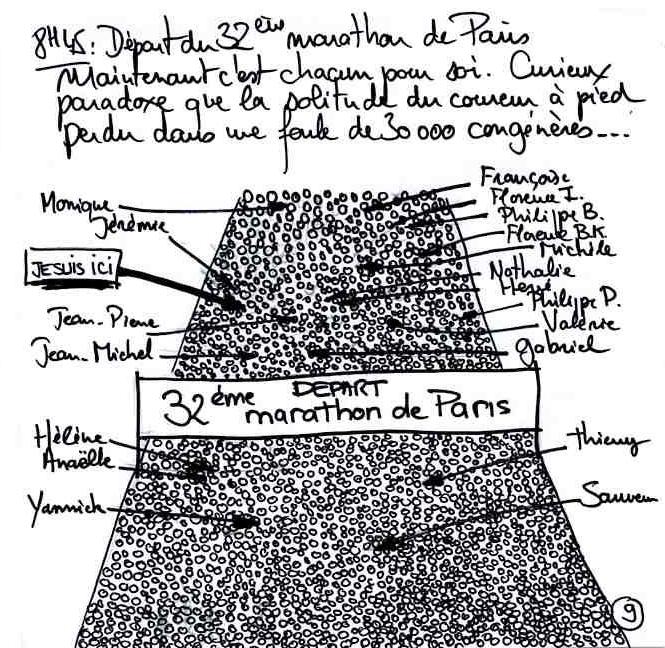 8H45: Départ du 32ème marathon de Paris
Maintenant c'est chacun pour soi. Curieux
paradoxe que la solitude du coureur à pied
perdu dans une foule de 30 000 congénères...
Françoise
Monique
Florence I.
Jérémie
Philippe B.
Florence B.K.
Michèle
JE SUIS ICI
Nathalie
Hervé
Philippe D.
Jean-Pierre
Valérie
Jean-Michel
Gabriel
DEPART
32ème marathon de Paris
Hélène
Thierry
Anaëlle
Yannick
Sauveur
9